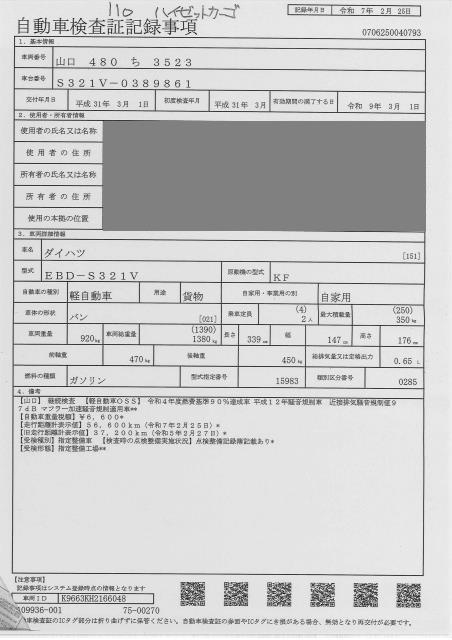 110 ハイゼットカーゴ
記録年月日 令和 7年 2月 25日
自動車検査証記録事項
0706250040793
1. 基本情報
車両番号 山口 480 ち 3523
車台番号 S321V-0389861
交付年月日 平成31年 3月 1日 初度検査年月 平成31年 3月 有効期間の満了する日 令和 9年 3月 1日
2. 使用者・所有者情報
使用者の氏名又は名称
使用者の住所
所有者の氏名又は名称
所有者の住所
使用の本拠の位置
3. 車両詳細情報
車名 ダイハツ [151]
型式 EBD-S321V 原動機の型式 KF
自動車の種別 軽自動車 用途 貨物 自家用・事業用の別 自家用
車体の形状 バン [021] 乗車定員 (4) 2人 最大積載量 (250) 350kg
車両重量 920kg 車両総重量 (1390) 1380kg 長さ 339cm 幅 147cm 高さ 176cm
前軸重 470kg 後軸重 450kg 総排気量又は定格出力 0.65 L
燃料の種類 ガソリン 型式指定番号 15983 類別区分番号 0285
4. 備考
【山口】 継続検査 【軽自動車OSS】 令和4年度燃費基準90%達成車 平成12年騒音規制車 近接排気騒音規制値9
7dB マフラー加速騒音規制適用車**
【自動車重量税額】¥6,600*
【走行距離計表示値】56,600km(令和7年2月25日)*
【旧走行距離計表示値】37,200km(令和5年2月27日)*
【受検種別】指定整備車 【検査時の点検整備実施状況】点検整備記録簿記載あり*
【受検形態】指定整備工場**
【注意事項】
記録事項はシステム登録時点の情報となります
車両ID K9663KH2166048
109936-001 75-00270
車検査証のICタグ部分は折り曲げずに保管ください。自動車検査証の券面やICタグにき損がある場合、無効となり再交付が必要です。